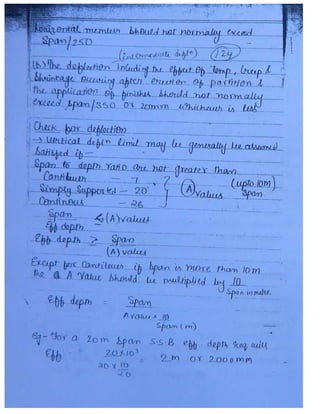 horizontal member should not normally exceed
Span/250
(intermediate depth) 124
(b) The deflection including the effect of Temp, Creep &
Shrinkage occuring after erection of partition &
the application of finishes should not normally
exceed span/350 or 20mm whichever is less
Check for deflection
→ Vertical depth limit may be generally be assumed
Satisfied if -
Span to depth ratio are not greater than
Cantilever - 7
Simply Supported - 20 (A) values (upto 10m) Span
Continous - 26
Span / Eff depth ≤ (A) values
Eff depth ≥ Span / (A) values
Except for Cantilever if Span is more than 10m
the A value should be multiplied by 10 / Span in metre
Eff depth = Span / A value × 10 / Span (m)
Eg - For a 20m Span S.S.B eff depth req will
Eff = 20×10³ / 20 × 10/20 = 2m or 2000mm